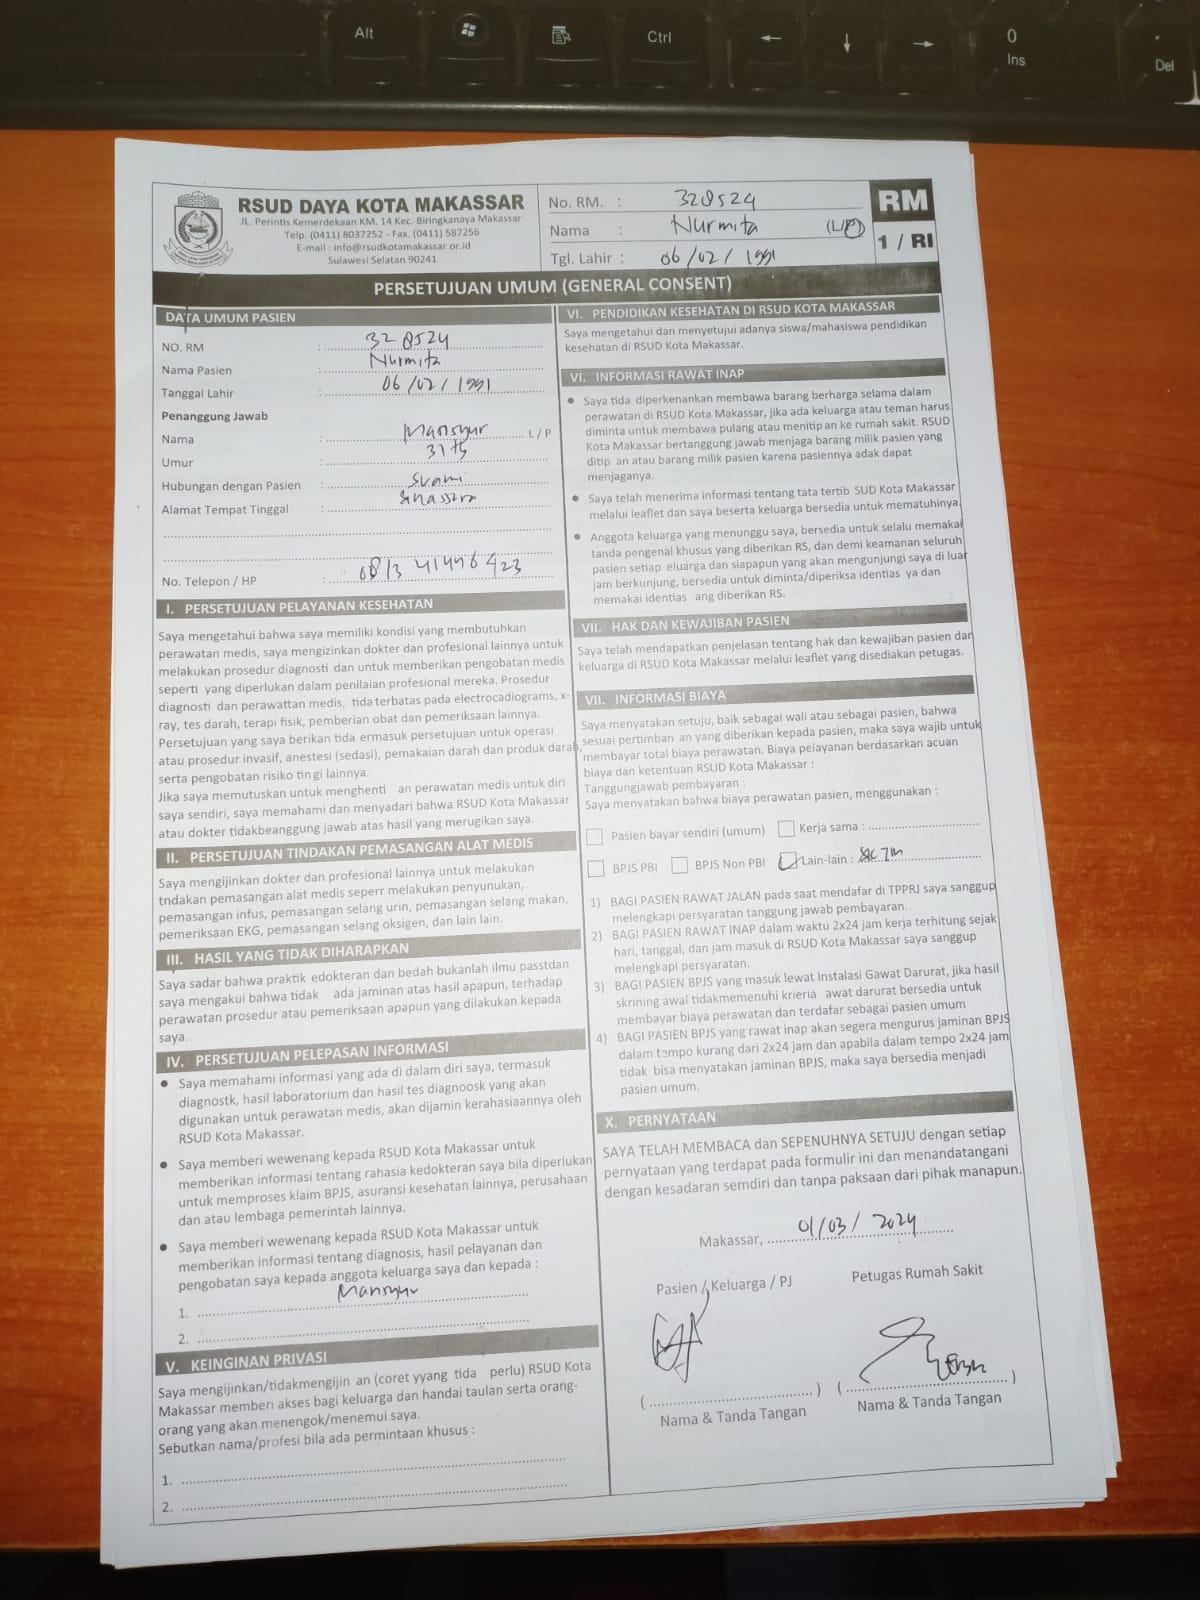 Alt
Ctrl
0
Ins
Del
RSUD DAYA KOTA MAKASSAR
JL. Perintis Kemerdekaan KM. 14 Kec. Biringkanaya Makassar
Telp. (0411) 8037252 - Fax. (0411) 587256
E-mail : info@rsudkotamakassar.or.id
Sulawesi Selatan 90241
No. RM. : 328524
Nama : Nurmita (L/P)
Tgl. Lahir : 06/02/1991
RM
1 / RI
PERSETUJUAN UMUM (GENERAL CONSENT)
DATA UMUM PASIEN
NO. RM : 328524
Nama Pasien : Nurmita
Tanggal Lahir : 06/02/1991
Penanggung Jawab
Nama : Mansyur L / P
Umur :
Hubungan dengan Pasien : Suami
Alamat Tempat Tinggal :
No. Telepon / HP :
I. PERSETUJUAN PELAYANAN KESEHATAN
Saya mengetahui bahwa saya memiliki kondisi yang membutuhkan
perawatan medis, saya mengizinkan dokter dan profesional lainnya untuk
melakukan prosedur diagnosti dan untuk memberikan pengobatan medis
seperti yang diperlukan dalam penilaian profesional mereka. Prosedur
diagnosti dan perawattan medis, tida terbatas pada electrocadiograms, x-
ray, tes darah, terapi fisik, pemberian obat dan pemeriksaan lainnya.
Persetujuan yang saya berikan tida ermasuk persetujuan untuk operasi
atau prosedur invasif, anestesi (sedasi), pemakaian darah dan produk darah,
serta pengobatan risiko tin gi lainnya.
Jika saya memutuskan untuk menghenti an perawatan medis untuk diri
saya sendiri, saya memahami dan menyadari bahwa RSUD Kota Makassar
atau dokter tidakbeanggung jawab atas hasil yang merugikan saya.
II. PERSETUJUAN TINDAKAN PEMASANGAN ALAT MEDIS
Saya mengijinkan dokter dan profesional lainnya untuk melakukan
tndakan pemasangan alat medis seperr melakukan penyunukan,
pemasangan infus, pemasangan selang urin, pemasangan selang makan,
pemeriksaan EKG, pemasangan selang oksigen, dan lain lain.
III. HASIL YANG TIDAK DIHARAPKAN
Saya sadar bahwa praktik edokteran dan bedah bukanlah ilmu passtdan
saya mengakui bahwa tidak ada jaminan atas hasil apapun, terhadap
perawatan prosedur atau pemeriksaan apapun yang dilakukan kepada
saya.
IV. PERSETUJUAN PELEPASAN INFORMASI
● Saya memahami informasi yang ada di dalam diri saya, termasuk
diagnostk, hasil laboratorium dan hasil tes diagnoosk yang akan
digunakan untuk perawatan medis, akan dijamin kerahasiaannya oleh
RSUD Kota Makassar.
● Saya memberi wewenang kepada RSUD Kota Makassar untuk
memberikan informasi tentang rahasia kedokteran saya bila diperlukan
untuk memproses klaim BPJS, asuransi kesehatan lainnya, perusahaan
dan atau lembaga pemerintah lainnya.
● Saya memberi wewenang kepada RSUD Kota Makassar untuk
memberikan informasi tentang diagnosis, hasil pelayanan dan
pengobatan saya kepada anggota keluarga saya dan kepada :
1. Mansyur
2.
V. KEINGINAN PRIVASI
Saya mengijinkan/tidakmengijin an (coret yyang tida perlu) RSUD Kota
Makassar memberi akses bagi keluarga dan handai taulan serta orang-
orang yang akan menengok/menemui saya.
Sebutkan nama/profesi bila ada permintaan khusus :
1.
2.
VI. PENDIDIKAN KESEHATAN DI RSUD KOTA MAKASSAR
Saya mengetahui dan menyetujui adanya siswa/mahasiswa pendidikan
kesehatan di RSUD Kota Makassar.
VI. INFORMASI RAWAT INAP
● Saya tida diperkenankan membawa barang berharga selama dalam
perawatan di RSUD Kota Makassar, jika ada keluarga atau teman harus
diminta untuk membawa pulang atau menitip an ke rumah sakit. RSUD
Kota Makassar bertanggung jawab menjaga barang milik pasien yang
ditip an atau barang milik pasien karena pasiennya adak dapat
menjaganya.
● Saya telah menerima informasi tentang tata tertib SUD Kota Makassar
melalui leaflet dan saya beserta keluarga bersedia untuk mematuhinya.
● Anggota keluarga yang menunggu saya, bersedia untuk selalu memakai
tanda pengenal khusus yang diberikan RS, dan demi keamanan seluruh
pasien setiap eluarga dan siapapun yang akan mengunjungi saya di luar
jam berkunjung, bersedia untuk diminta/diperiksa identias ya dan
memakai identias ang diberikan RS.
VII. HAK DAN KEWAJIBAN PASIEN
Saya telah mendapatkan penjelasan tentang hak dan kewajiban pasien dan
keluarga di RSUD Kota Makassar melalui leaflet yang disediakan petugas.
VII. INFORMASI BIAYA
Saya menyatakan setuju, baik sebagai wali atau sebagai pasien, bahwa
sesuai pertimban an yang diberikan kepada pasien, maka saya wajib untuk
membayar total biaya perawatan. Biaya pelayanan berdasarkan acuan
biaya dan ketentuan RSUD Kota Makassar :
Tanggungjawab pembayaran :
Saya menyatakan bahwa biaya perawatan pasien, menggunakan :
Pasien bayar sendiri (umum) Kerja sama :
BPJS PBI BPJS Non PBI Lain-lain :
1) BAGI PASIEN RAWAT JALAN pada saat mendafar di TPPRJ saya sanggup
melengkapi persyaratan tanggung jawab pembayaran.
2) BAGI PASIEN RAWAT INAP dalam waktu 2x24 jam kerja terhitung sejak
hari, tanggal, dan jam masuk di RSUD Kota Makassar saya sanggup
melengkapi persyaratan.
3) BAGI PASIEN BPJS yang masuk lewat Instalasi Gawat Darurat, jika hasil
skrining awal tidakmemenuhi krieria awat darurat bersedia untuk
membayar biaya perawatan dan terdafar sebagai pasien umum
4) BAGI PASIEN BPJS yang rawat inap akan segera mengurus jaminan BPJS
dalam tempo kurang dari 2x24 jam dan apabila dalam tempo 2x24 jam
tidak bisa menyatakan jaminan BPJS, maka saya bersedia menjadi
pasien umum.
X. PERNYATAAN
SAYA TELAH MEMBACA dan SEPENUHNYA SETUJU dengan setiap
pernyataan yang terdapat pada formulir ini dan menandatangani
dengan kesadaran semdiri dan tanpa paksaan dari pihak manapun.
Makassar, 01/03/2024
Pasien / Keluarga / PJ Petugas Rumah Sakit
Nama & Tanda Tangan Nama & Tanda Tangan